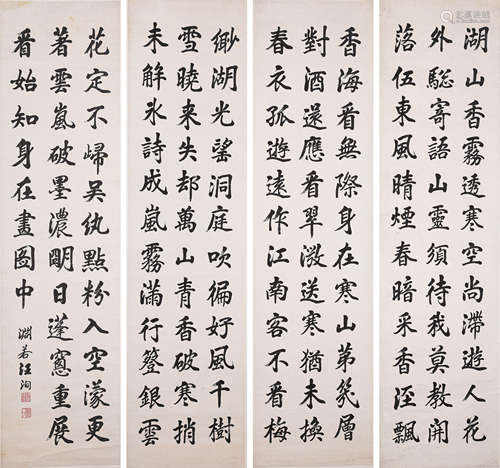 湖山香霧透寒空尚滯遊人花
外驄寄語山靈須待我莫教開
落伍東風晴煙春暗采香涇飄
香海看無際身在寒山苐幾層
對酒還應看翠瀲送寒猶未換
春衣孤遊遠作江南客不看梅
緲湖光望洞庭吹徧好風千樹
雪曉来失却萬山青香破寒捎
未解氷詩成嵐霧滿行簦銀雲
花定不歸吴紈點粉入空濛更
著雲嵐破墨濃明日蓬窓重展
看始知身在畫圖中
淵若汪洵